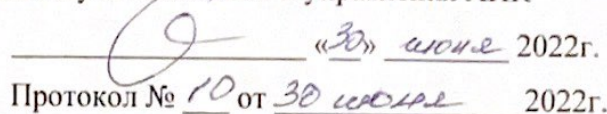 «30» июня 2022г.
Протокол № 10 от 30 июня 2022г.